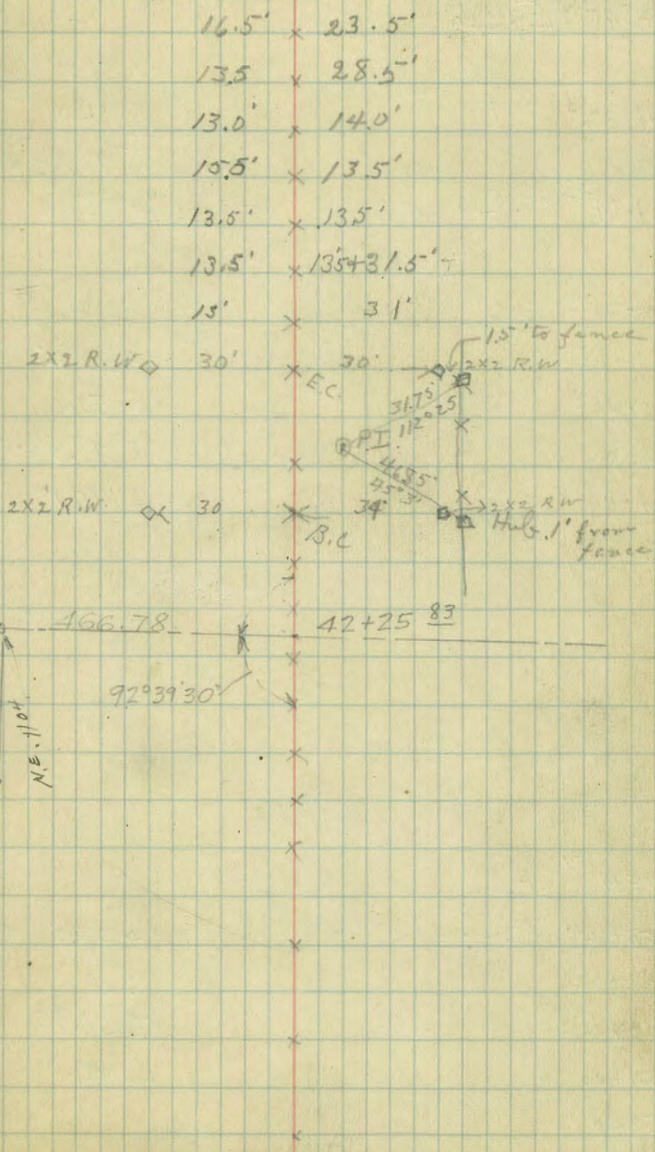 16.5' 23.5'
13.5 28.5'
13.0' 14.0'
15.5' 13.5'
13.5' 13.5'
13.5' 13.5+31.5'
15' 31'
1.5' to fence
2x2 R.W 30' 30' 2x2 R.W
E.C.
31.75'
112°25
P.I.
46.85
45°3'
2x2 R.W. 30 34' 2x2 RW
B.C Hub .1' from
fence
466.78 42+25 83
92°39'30"
N.E. 1104